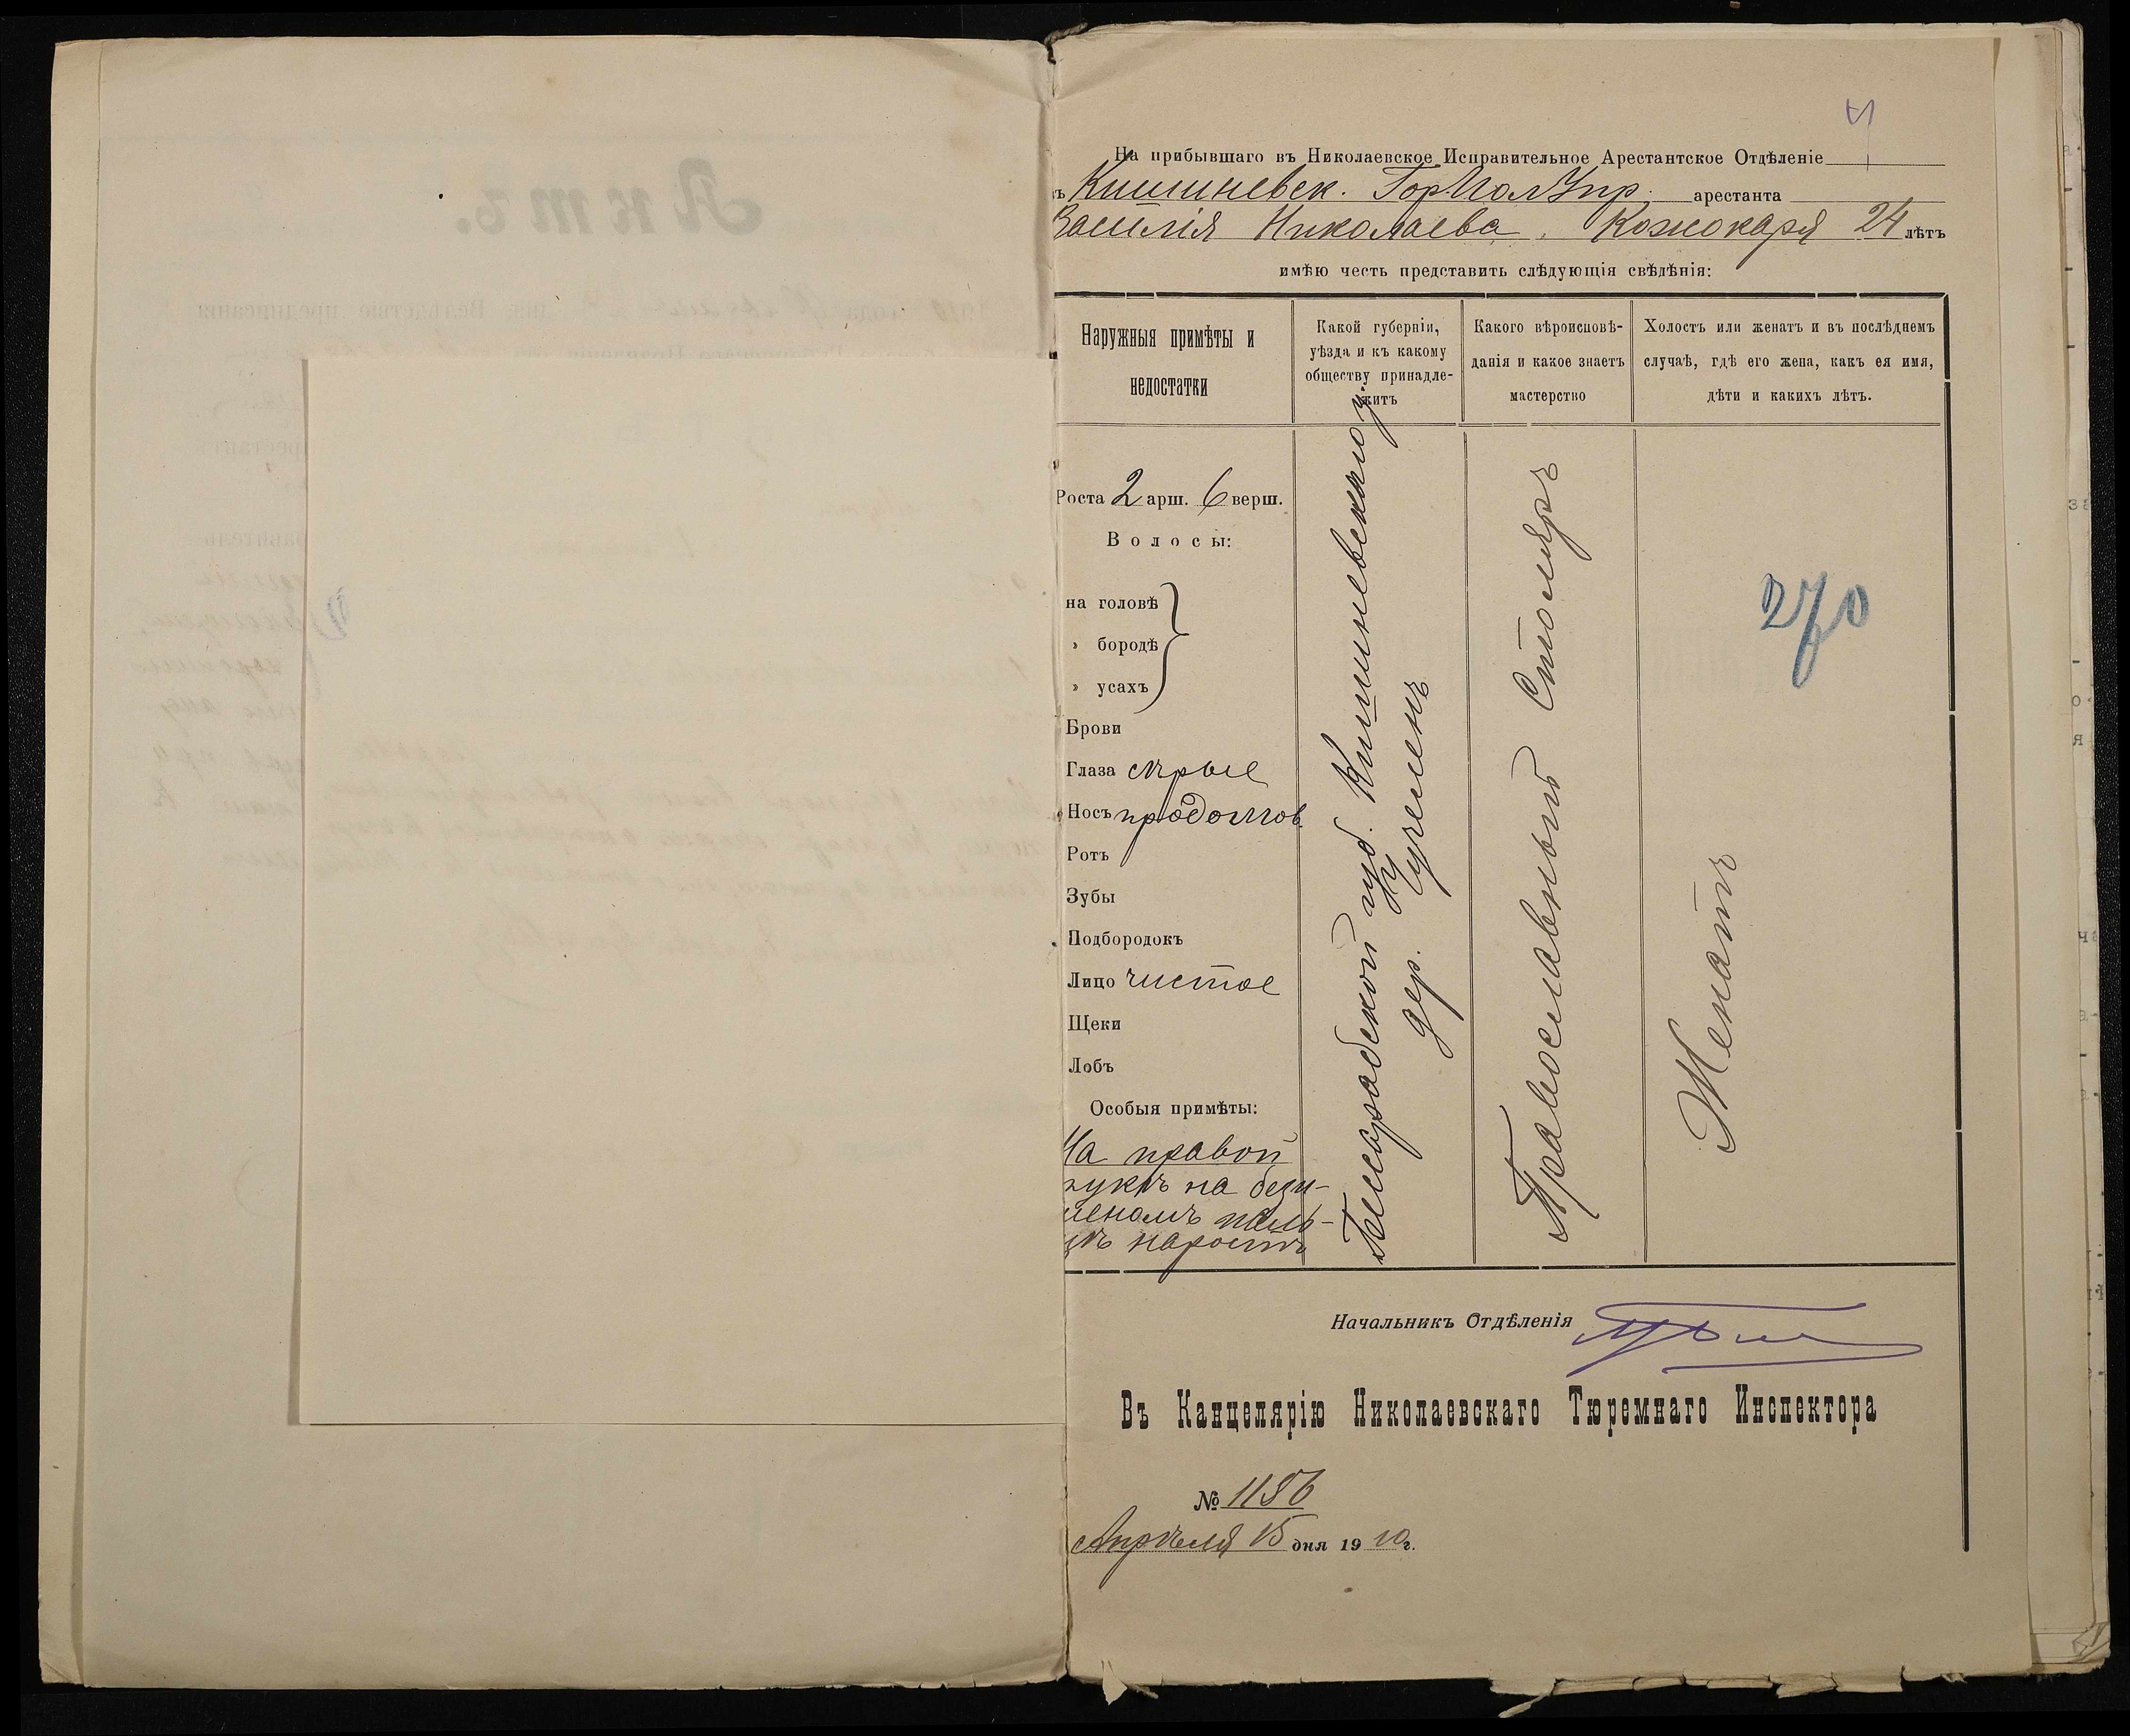 На прибывшаго въ Николаевское Исправительное Арестантское Отдѣленіе
Кишиневск. ГорПолУпр. арестанта
Василія Николаева Кожокаря 24 лѣтъ
имѣю честь представить слѣдующія свѣдѣнія:
Наружныя примѣты и
недостатки
Какой губерніи,
уѣзда и къ какому
обществу принадле-
житъ
Какого вѣроисповѣ-
данія и какое знаетъ
мастерство
Холостъ или женатъ и въ послѣднемъ
случаѣ, гдѣ его жена, какъ ея имя,
дѣти и какихъ лѣтъ.
Роста 2 арш. 6 верш.
Волосы:
на головѣ
» бородѣ
» усахъ
Брови
Глаза сѣрые
Носъ продолгов.
Ротъ
Зубы
Подбородокъ
Лицо чистое
Щеки
Лобъ
Особыя примѣты:
На правой
рукѣ на безы-
меномъ паль-
цѣ наростъ
Бессарабской губ. Кишиневского у
дер. Чучеленъ
Православный Столяръ
Женатъ
270
Начальникъ Отдѣленія
Въ Канцелярію Николаевскаго Тюремнаго Инспектора
№ 1186
Апрѣля 15 дня 1910 г.
Актъ.